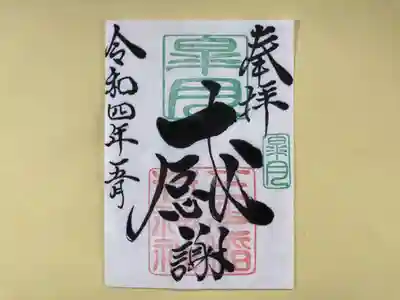 奉拝
皐月
皐月
感謝
令和四年五月